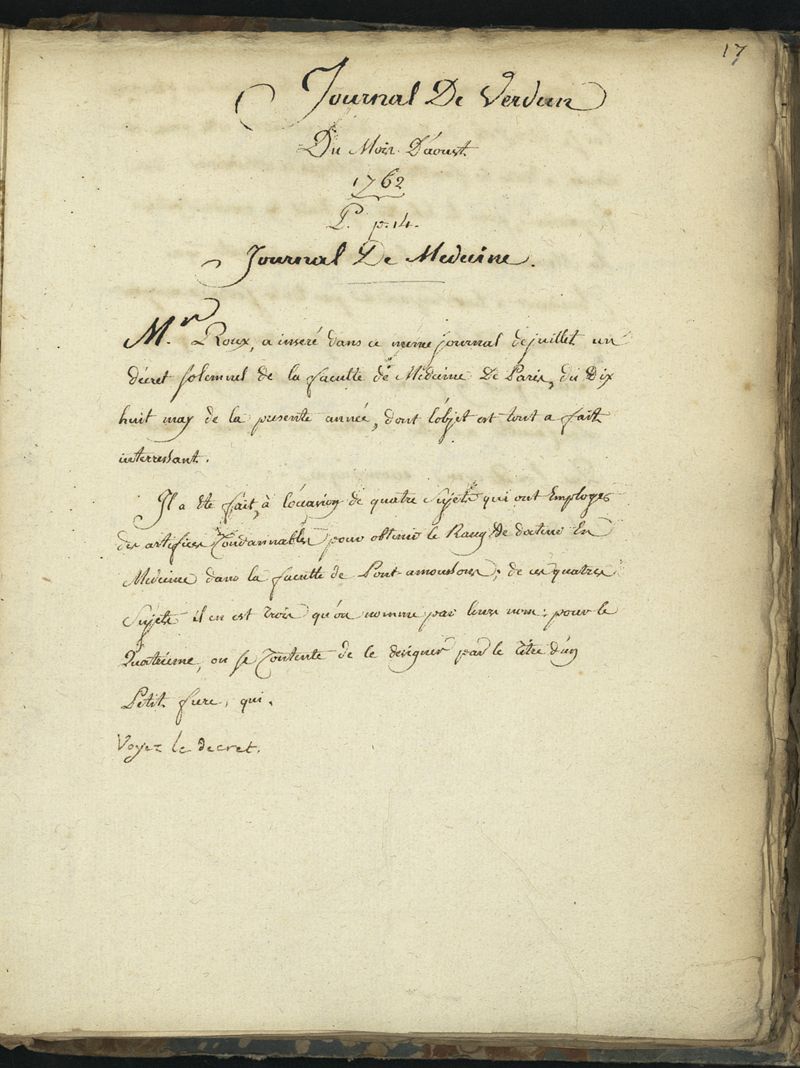 17
Journal De Verdun
Du Mois D'aoust
1762
P. p. 14.
Journal De Medecine.
M.r Roux, a inseré dans ce meme journal de juillet un
décret solemnel de la faculté de Médecine De Paris, du Dix
huit may de la presente année, dont l'objet est tout a fait
interressant.
Il a été fait, à l'occasion de quatre sujets qui ont Employés
des artifices Condannables pour obtenir le Rang de docteur En
Medecine dans la faculté de Pont-amousson; de ces quatres
sujets il en est trois qu'on nomme par leurs nom; pour le
Quatrième, on se Contente de le designer par le titre d'un
Petit frere, qui.
Voyez le decret.